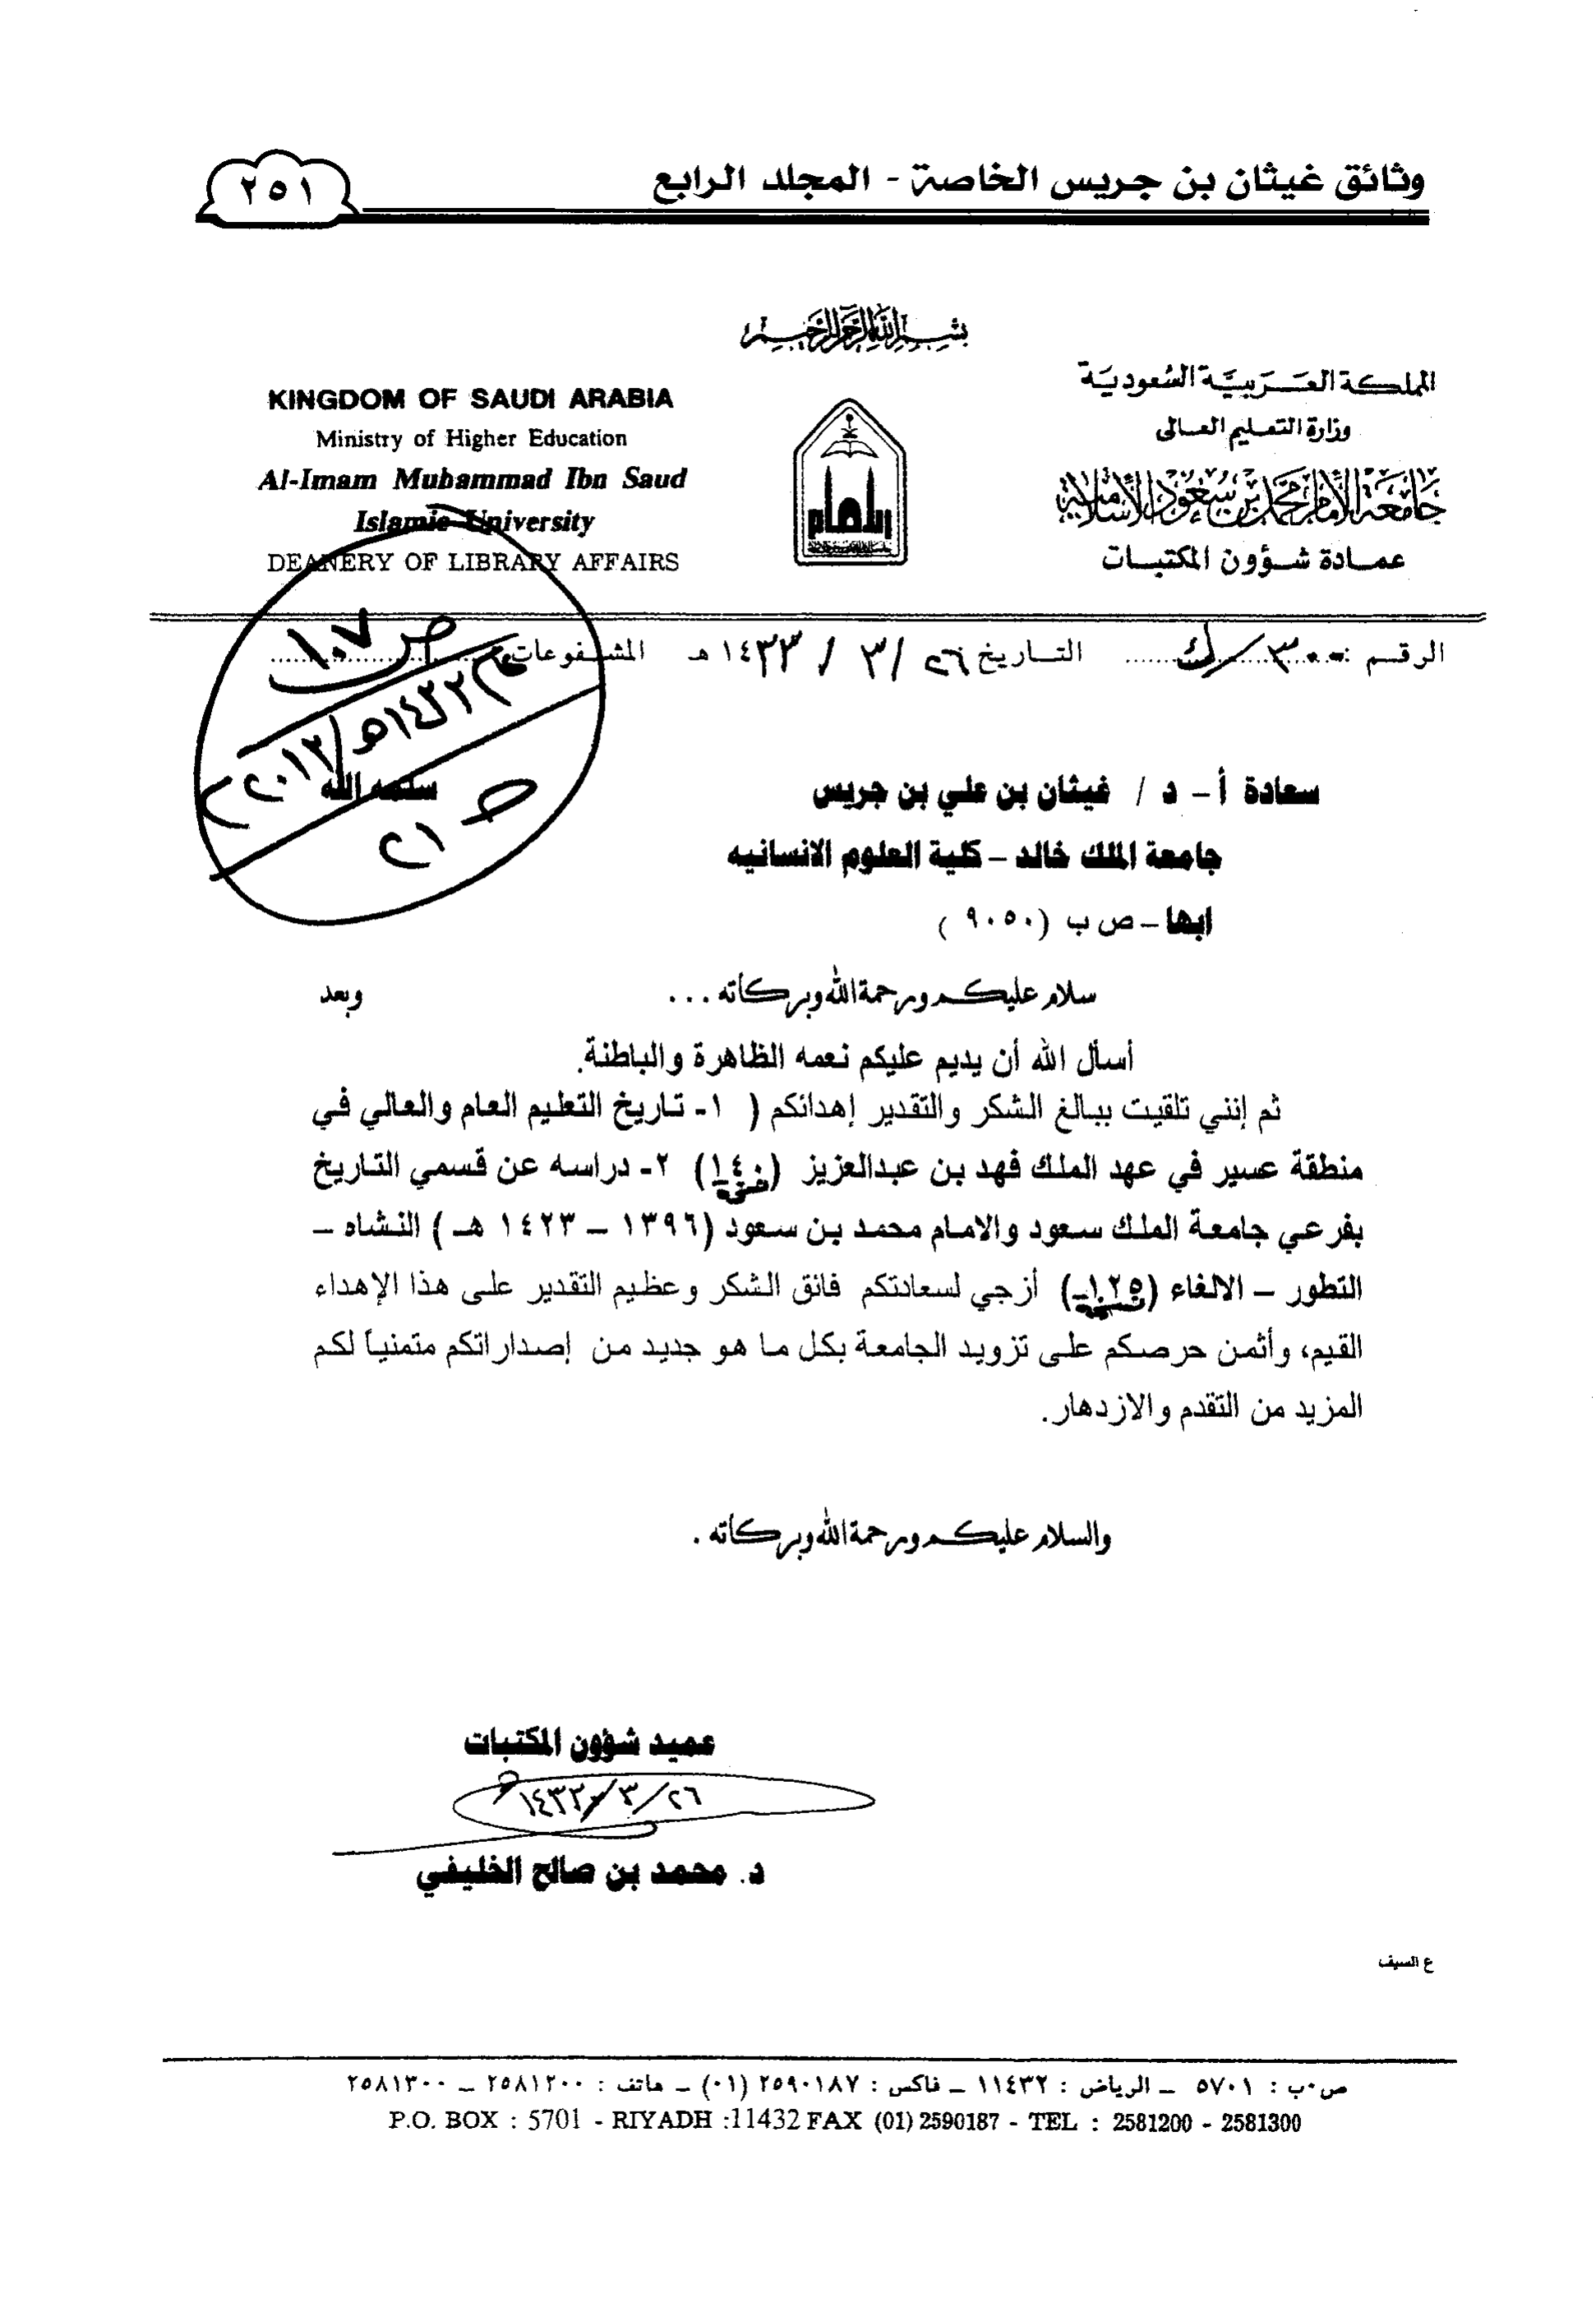 وثائق غيثان بن جريس الخاصة - المجلد الرابع
٢٥١
بسم الله الرحمن الرحيم
المملكة العربية السعودية
وزارة التعليم العالي
جامعة الإمام محمد بن سعود الإسلامية
عمادة شؤون المكتبات
KINGDOM OF SAUDI ARABIA
Ministry of Higher Education
Al-Imam Muhammad Ibn Saud
Islamic University
DEANERY OF LIBRARY AFFAIRS
الرقم : التاريخ ٢٦ / ٣ / ١٤٣٣ هـ المشفوعات
ص ١٠٧
سعادة أ - د / غيثان بن علي بن جريس سلمه الله
جامعة الملك خالد – كلية العلوم الانسانيه
ابها – ص ب (٩٠٥٠ )
سلام عليكم ورحمة الله وبركاته ... وبعد
أسأل الله أن يديم عليكم نعمه الظاهرة والباطنة.
ثم إنني تلقيت ببالغ الشكر والتقدير إهدائكم ( ١- تاريخ التعليم العام والعالي في
منطقة عسير في عهد الملك فهد بن عبدالعزيز ( ) ٢- دراسه عن قسمي التاريخ
بفرعي جامعة الملك سعود والامام محمد بن سعود (١٣٩٦ – ١٤٢٣ هـ ) النشاه –
التطور – الالغاء ( ) أزجي لسعادتكم فائق الشكر وعظيم التقدير على هذا الإهداء
القيم، وأثمن حرصكم على تزويد الجامعة بكل ما هو جديد من إصداراتكم متمنياً لكم
المزيد من التقدم والازدهار.
والسلام عليكم ورحمة الله وبركاته .
عميد شؤون المكتبات
٢٦/٣/١٤٣٣
د. محمد بن صالح الخليفي
ع السيف
ص٠ب : ٥٧٠١ – الرياض : ١١٤٣٢ – فاكس : ٢٥٩٠١٨٧ (٠١) – هاتف : ٢٥٨١٢٠٠ – ٢٥٨١٣٠٠
P.O. BOX : 5701 - RIYADH :11432 FAX (01) 2590187 - TEL : 2581200 - 2581300